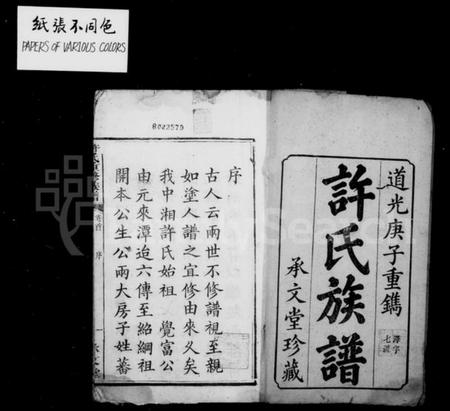 紙張不同色
PAPERS OF VARIOUS COLORS
8022570
道光庚子重鐫
許氏族譜
承文堂珍藏
序
古人云兩世不修譜視至親
如塗人譜之宜修由來久矣
我中湘許氏始祖 覺富公
由元來潭迨六傳至紹綱祖
開本公生公兩大房子姓蕃